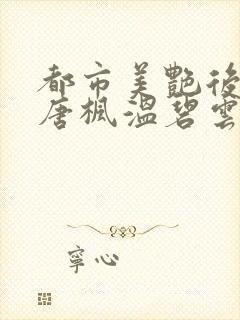 都市美艷後
唐楓溫碧雲
寧心